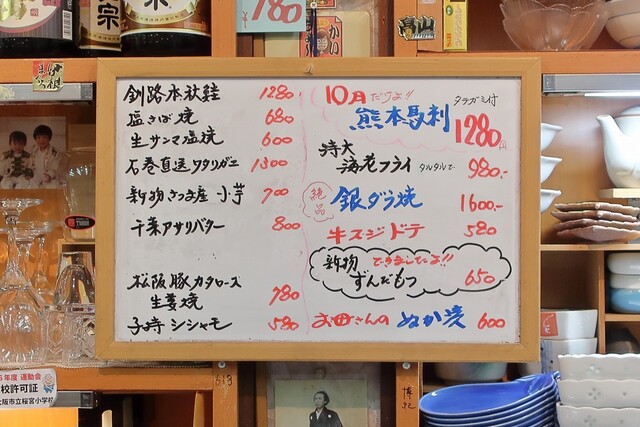 780
宗
高山
釧路本秋鮭 1280
塩さば焼 680
生サンマ塩焼 600
石巻直送タタリガエ 1300
新物さつま産 小芋 700
千葉アサリバター 800
松阪豚カタロース
生姜焼 780
子持シシャモ 580
10月だけよ!!
タテガミ付
熊本馬刺 1280円
特大
海老フライ タルタルで 980.-
絶品
銀ダラ焼 1600.-
牛スジドテ 580
新物 できましたよ!!
ずんだもつ 650
お母さんの ぬか漬 600
年度 運動会
校許可証
大阪市立桜宮小学校